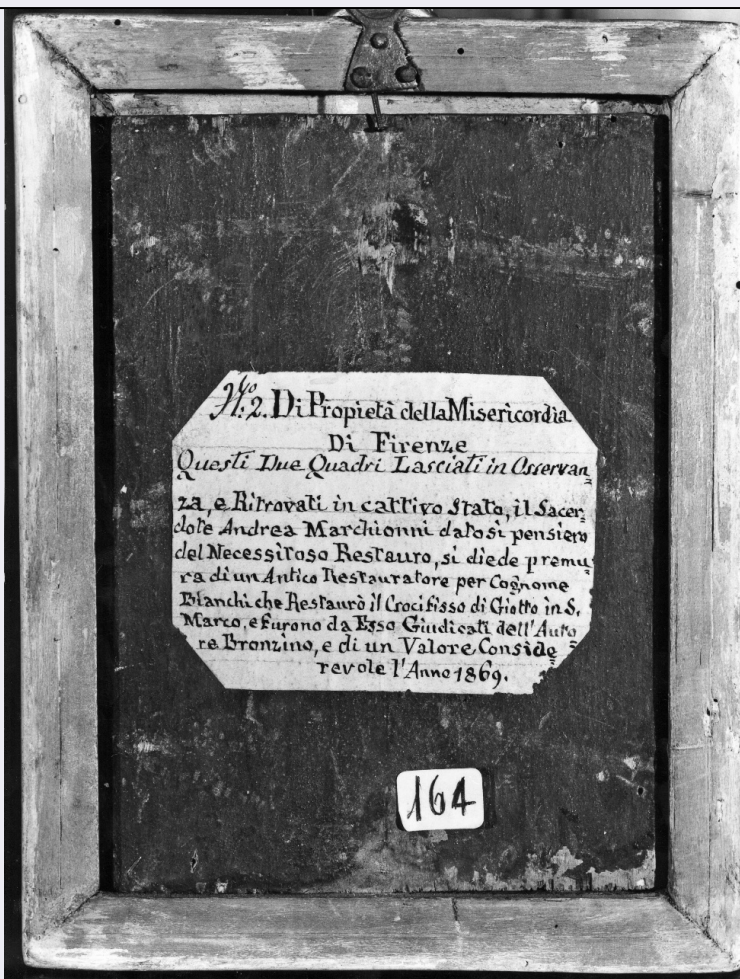 N.º 2. Di Propietà della Misericordia
Di Firenze
Questi Due Quadri Lasciati in Osservan=
za, e Ritrovati in cattivo Stato, il Sacer=
dote Andrea Marchionni datosi pensiero
del Necessitoso Restauro, si diede premu=
ra di un Antico Restauratore per Cognome
Bianchi che Restaurò il Crocifisso di Giotto in S.
Marco, e furono da Esso Giudicati dell'Auto=
re Bronzino, e di un Valore Conside=
revole l'Anno 1869.
164